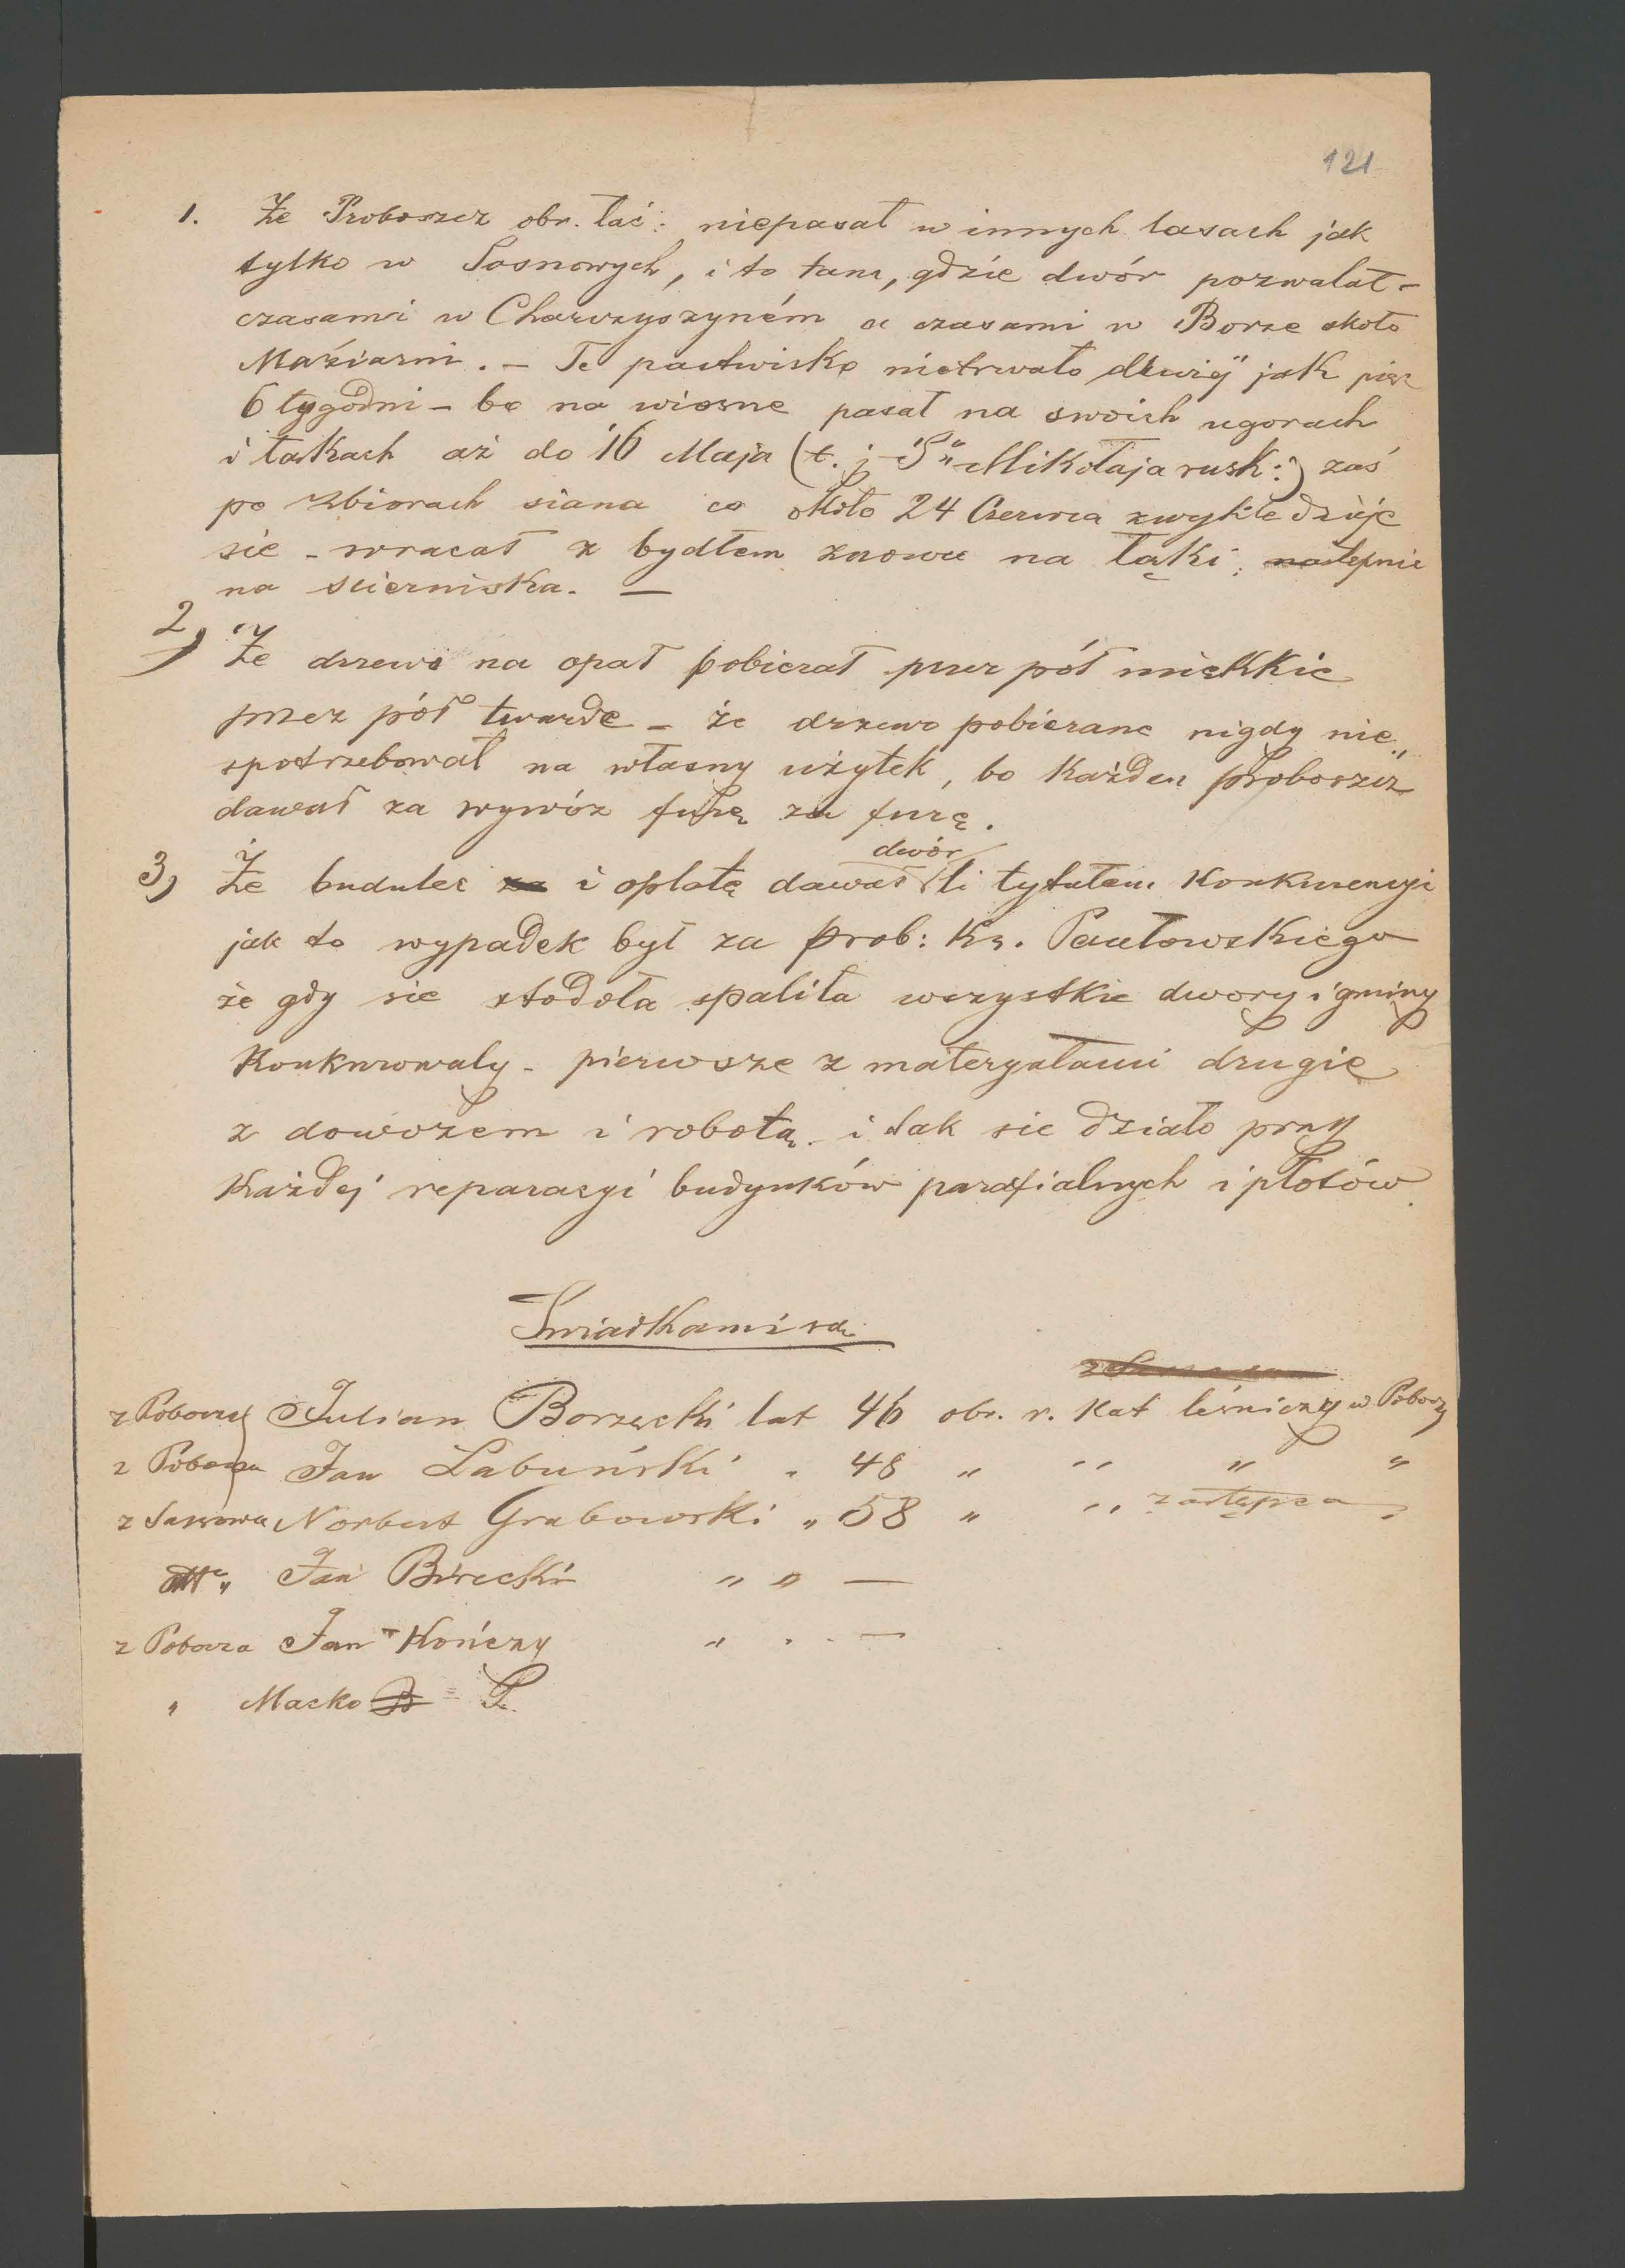 121
1. Że Proboszcz obr. łać: niepasał w innych lasach jak
tylko w Sosnowych, i to tam, gdzie dwór pozwalał –
czasami w Charzyszyném a czasami w Borze około
Maziarni. – Te pastwisko nietrwało dłużéj jak pięć
6 tygodni – bo na wiosne pasał na swoich ugorach
i łąkach aż do 16 Maja (t. j. Śgo Mikołaja rusk:) zaś
po zbiorach siana co około 24 Czerwca zwykle dzieje
sie – wracał z bydłem znowu na łąki; następnie
na scierniska. —
2) Że drzewo na opał pobierał przez pół miękkie
przez pół twarde – że drzewo pobierane nigdy nie„
spotrzebował na własny użytek, bo każden proboszcz
dawał za wywóz furę za furę.
dwór
3) Że budulec i opłatę dawał li tytułem Konkurencyi
jak to wypadek był za prob: Ks. Pawłowskiego
że gdy sie stodoła spaliła wszystkie dwory i gminy
Konkurowały – pierwsze z materyałami drugie
z dowozem i robotą – i tak sie działo przy
Każdej reparacyi budynków parafialnych i płotów.
Swiadkami są
z Poborza Julian Borzęcki lat 46 obr. r. Kat leśniczy w Poborzy
z Poborza Jan Łabuński „ 48 „ „ „ „
z Sassowa Norbert Grabowski „ 58 „ „ zastępca „
„ Jan Birecki „ „ —
z Poborza Jan Kończy „ „ —
„ Maćko P.